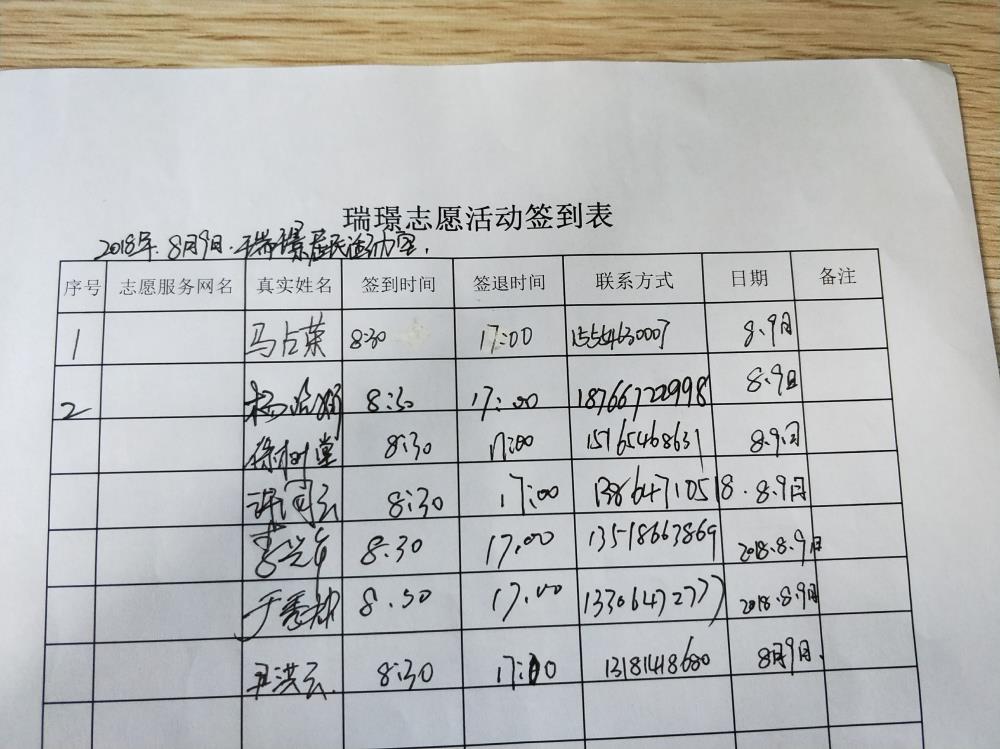 瑞璟志愿活动签到表
2018年.8月9日.于瑞璟居民活动室.
序号 志愿服务网名 真实姓名 签到时间 签退时间 联系方式 日期 备注
1 马占荣 8:30 17:00 15554630007 8.9日
2 8:30 17:00 18766722998 8.9日
徐树堂 8:30 17:00 15165468631 8.9.日
8:30 17:00 13864710518. 8.9日
8.30 17.00 13518663869 2018.8.9日
于秀林 8.30 17.00 13306472777 2018.8.9日
王洪云. 8:30 17:00 13181418680 8月9日.